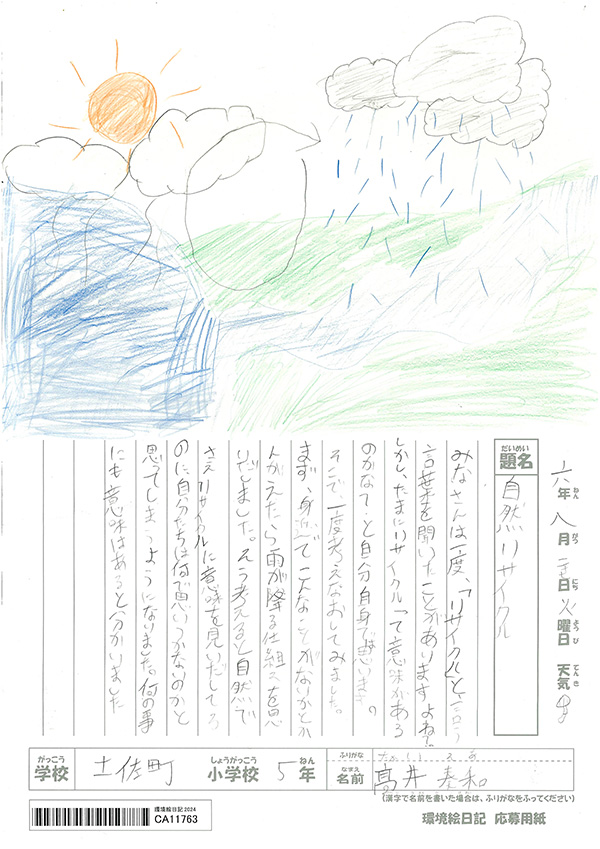 六年 八月 日 火曜日 天気
ねん がつ にち ようび てんき
だいめい
題名
自然リサイクル
みなさんは一度、「リサイクル」と、言う
言葉を聞いたことがありますよね?
しかし、たまにリサイクルって意味がある
のかなて、と自分自身で思います。
そこで、一度考えなおしてみました。
まず、身近でこんなことがないかとか
んがえたら雨が降る仕組みを思
いだしました。そう考えると自然で
さえリサイクルに意味を見いだしてる
のに自分たちは何で思いつかないのかと
思ってしまうようになりました。何の事
にも意味はあると分かいました
がっこう
学校
土佐町
しょうがっこう
小学校
5
ねん
年
ふりがな
なまえ
名前
高井
(漢字で名前を書いた場合は、ふりがなをふってください)
環境絵日記2024
CA11763
環境絵日記 応募用紙